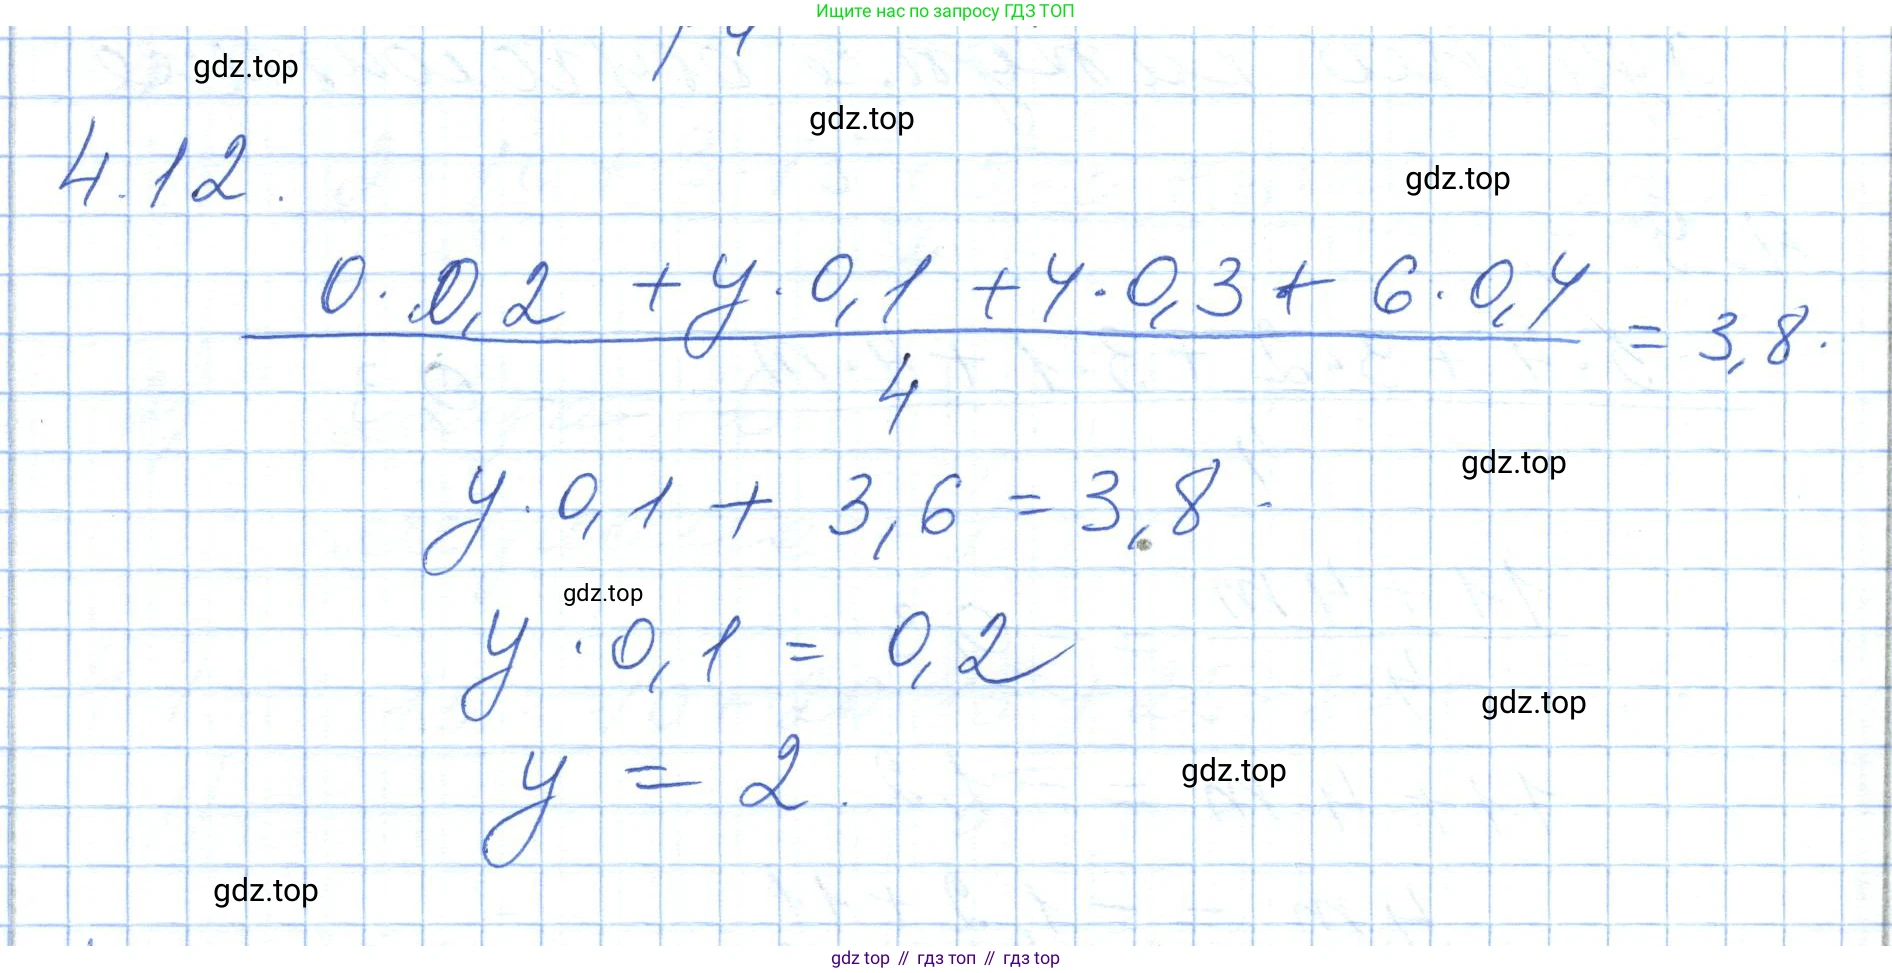 Ищите нас по запросу ГДЗ ТОП
gdz.top
gdz.top
4.12.
gdz.top
0 · 0,2 + y · 0,1 + 4 · 0,3 + 6 · 0,4
= 3,8.
4
y · 0,1 + 3,6 = 3,8 ·
gdz.top
gdz.top
y · 0,1 = 0,2
gdz.top
y = 2.
gdz.top
gdz.top
gdz top // гдз топ // гдз top